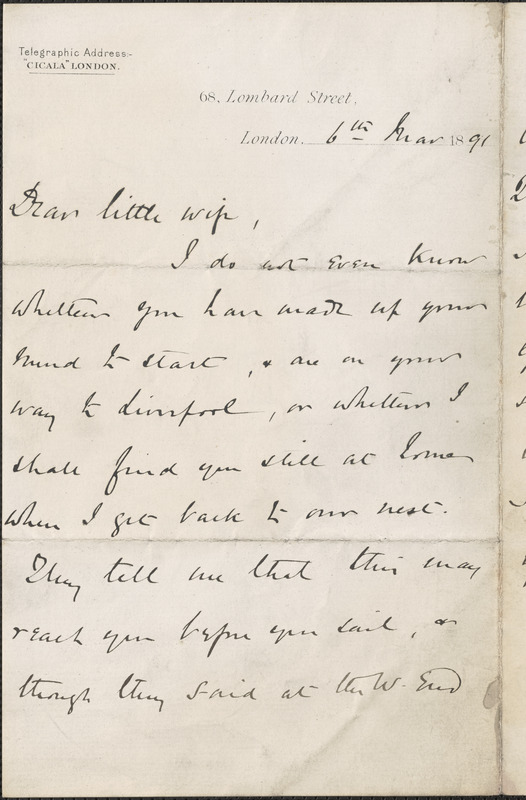 Telegraphic Address:-
"CICALA" LONDON.
68, Lombard Street,
London. 6th Mar 1891
Dear little wife,
I do not even know
whether you have made up your
mind to start, & are on your
way to Liverpool, or whether I
shall find you still at home
when I get back to our nest.
They tell me that this may
reach you before you sail, &
though they said at the W. End